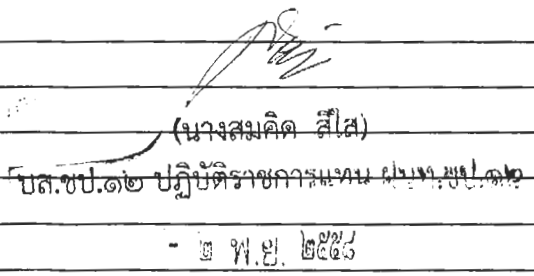 (นางสมคิด สีใส)
บส.ชป.๑๒ ปฏิบัติราชการแทน ผบท.ชป.๑๒
- ๒ พ.ย. ๒๕๕๘